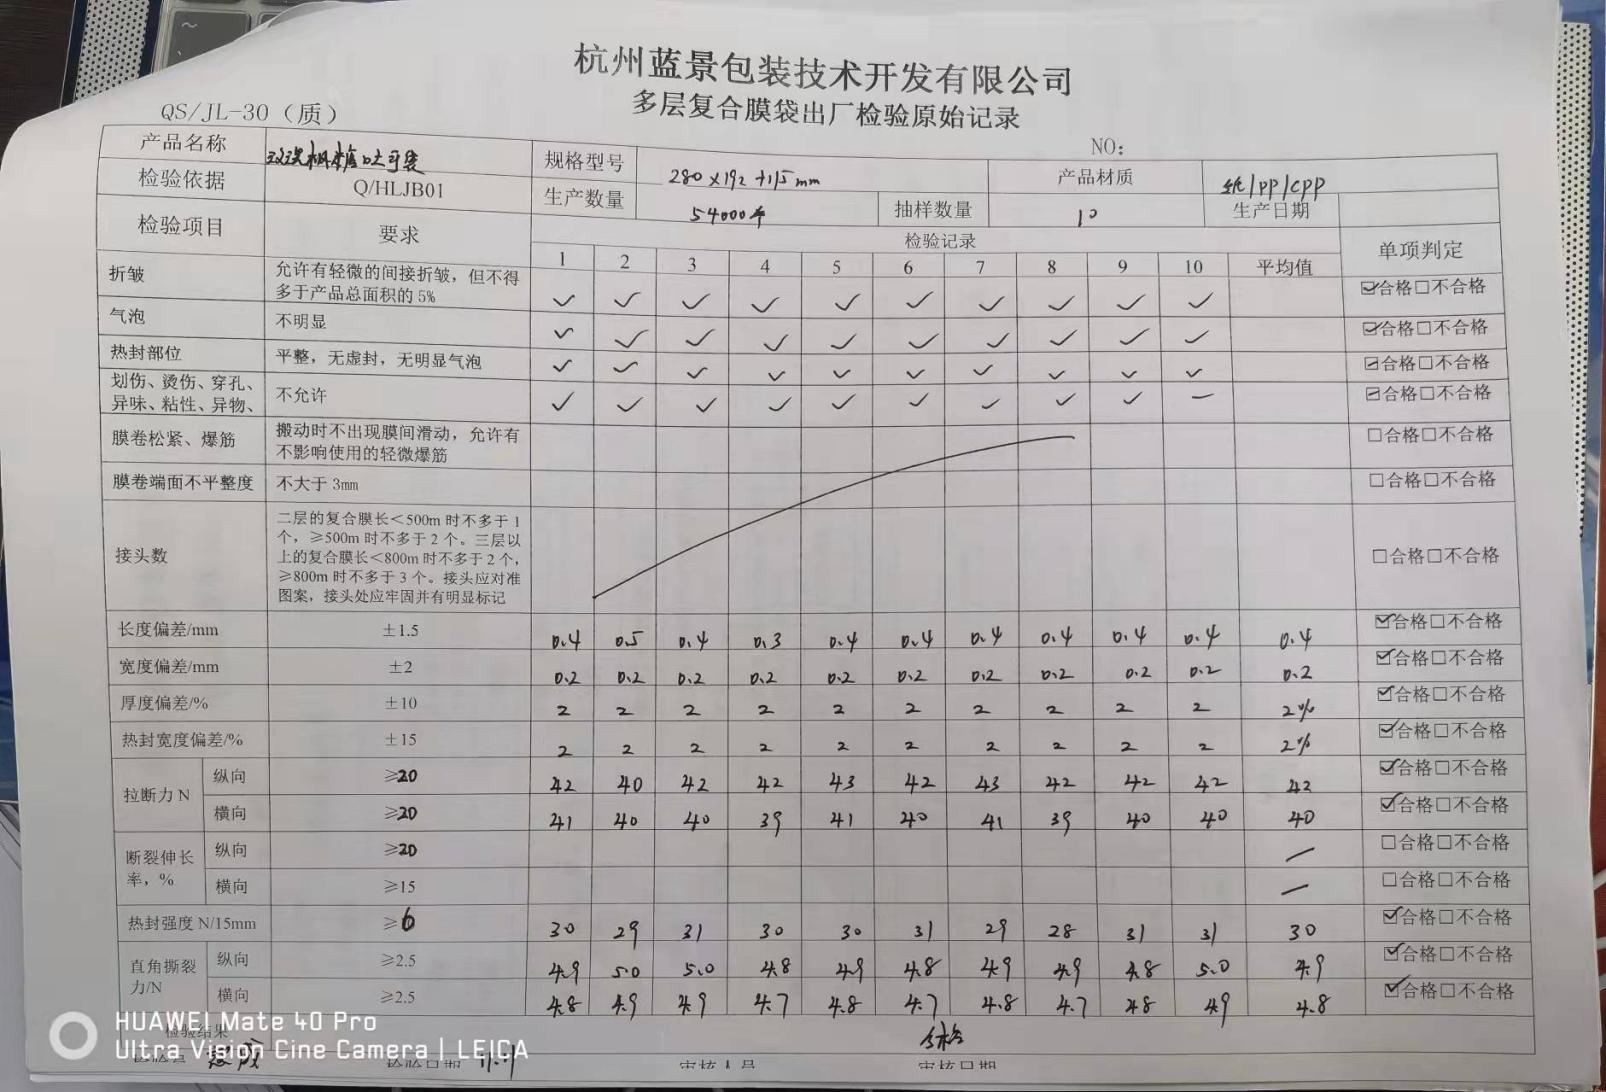 杭州蓝景包装技术开发有限公司
QS/JL-30（质）
多层复合膜袋出厂检验原始记录
NO:
产品名称 规格型号 280×192 产品材质 纸/PP/CPP
检验依据 Q/HLJB01 生产数量 54000 抽样数量 10 生产日期
检验项目 要求 检验记录 单项判定
1 2 3 4 5 6 7 8 9 10 平均值
折皱 允许有轻微的间接折皱，但不得 ✓ ✓ ✓ ✓ ✓ ✓ ✓ ✓ ✓ ✓ ☑合格□不合格
多于产品总面积的5%
气泡 不明显 ✓ ✓ ✓ ✓ ✓ ✓ ✓ ✓ ✓ ✓ ☑合格□不合格
热封部位 平整，无虚封，无明显气泡 ✓ ✓ ✓ ✓ ✓ ✓ ✓ ✓ ✓ ✓ ☑合格□不合格
划伤、烫伤、穿孔、 不允许 ✓ ✓ ✓ ✓ ✓ ✓ ✓ ✓ ✓ — ☑合格□不合格
异味、粘性、异物、
膜卷松紧、爆筋 搬动时不出现膜间滑动，允许有 □合格□不合格
不影响使用的轻微爆筋
膜卷端面不平整度 不大于3mm □合格□不合格
二层的复合膜长＜500m时不多于1
个，≥500m时不多于2个。三层以
接头数 上的复合膜长＜800m时不多于2个， □合格□不合格
≥800m时不多于3个。接头应对准
图案，接头处应牢固并有明显标记
长度偏差/mm ±1.5 0.4 0.5 0.4 0.3 0.4 0.4 0.4 0.4 0.4 0.4 0.4 ☑合格□不合格
宽度偏差/mm ±2 0.2 0.2 0.2 0.2 0.2 0.2 0.2 0.2 0.2 0.2 0.2 ☑合格□不合格
厚度偏差/% ±10 2 2 2 2 2 2 2 2 2 2 2% ☑合格□不合格
热封宽度偏差/% ±15 2 2 2 2 2 2 2 2 2 2 2% ☑合格□不合格
拉断力N 纵向 ≥20 42 40 42 42 43 42 43 42 42 42 42 ☑合格□不合格
横向 ≥20 41 40 40 39 41 40 41 39 40 40 40 ☑合格□不合格
断裂伸长率，% 纵向 ≥20 — □合格□不合格
横向 ≥15 — □合格□不合格
热封强度N/15mm ≥6 30 29 31 30 30 31 29 28 31 31 30 ☑合格□不合格
直角撕裂力/N 纵向 ≥2.5 4.9 5.0 5.0 4.8 4.9 4.8 4.9 4.9 4.8 5.0 4.9 ☑合格□不合格
横向 ≥2.5 4.8 4.9 4.9 4.7 4.8 4.7 4.8 4.7 4.8 4.9 4.8 ☑合格□不合格
检验结果 合格
检验日期 审核人员 审核日期
HUAWEI Mate 40 Pro
Ultra Vision Cine Camera | LEICA